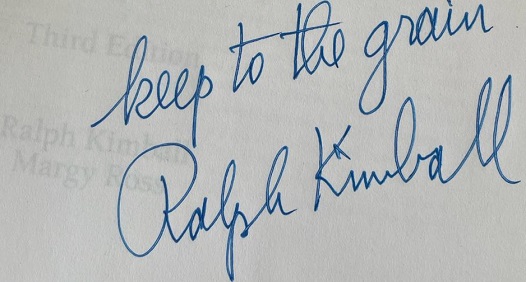 Third Edition
keep to the grain
Ralph Kimball
Margy Ross
Ralph Kimball